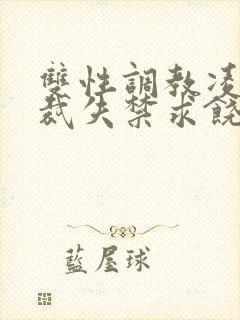 雙性調教凌
裁失禁求饒
藍屋球